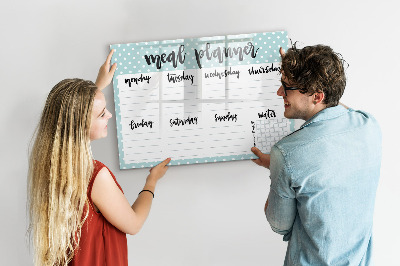 meal planner
monday tuesday wednesday thursday
friday saturday sunday water